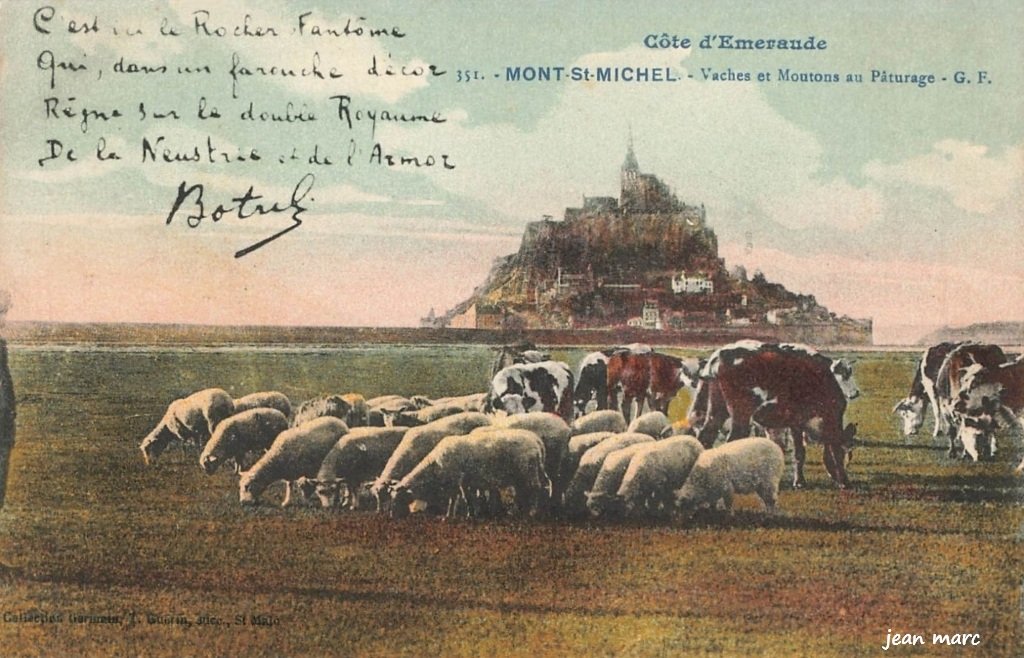 C'est ici le Rocher Fantôme
Qui, dans un farouche décor
Règne sur le double Royaume
De la Neustrie et de l'Armor
Botrel
Côte d'Emeraude
351. - MONT-St-MICHEL. - Vaches et Moutons au Pâturage - G. F.
Collection Germain, T. Guérin, succ., St Malo
jean marc